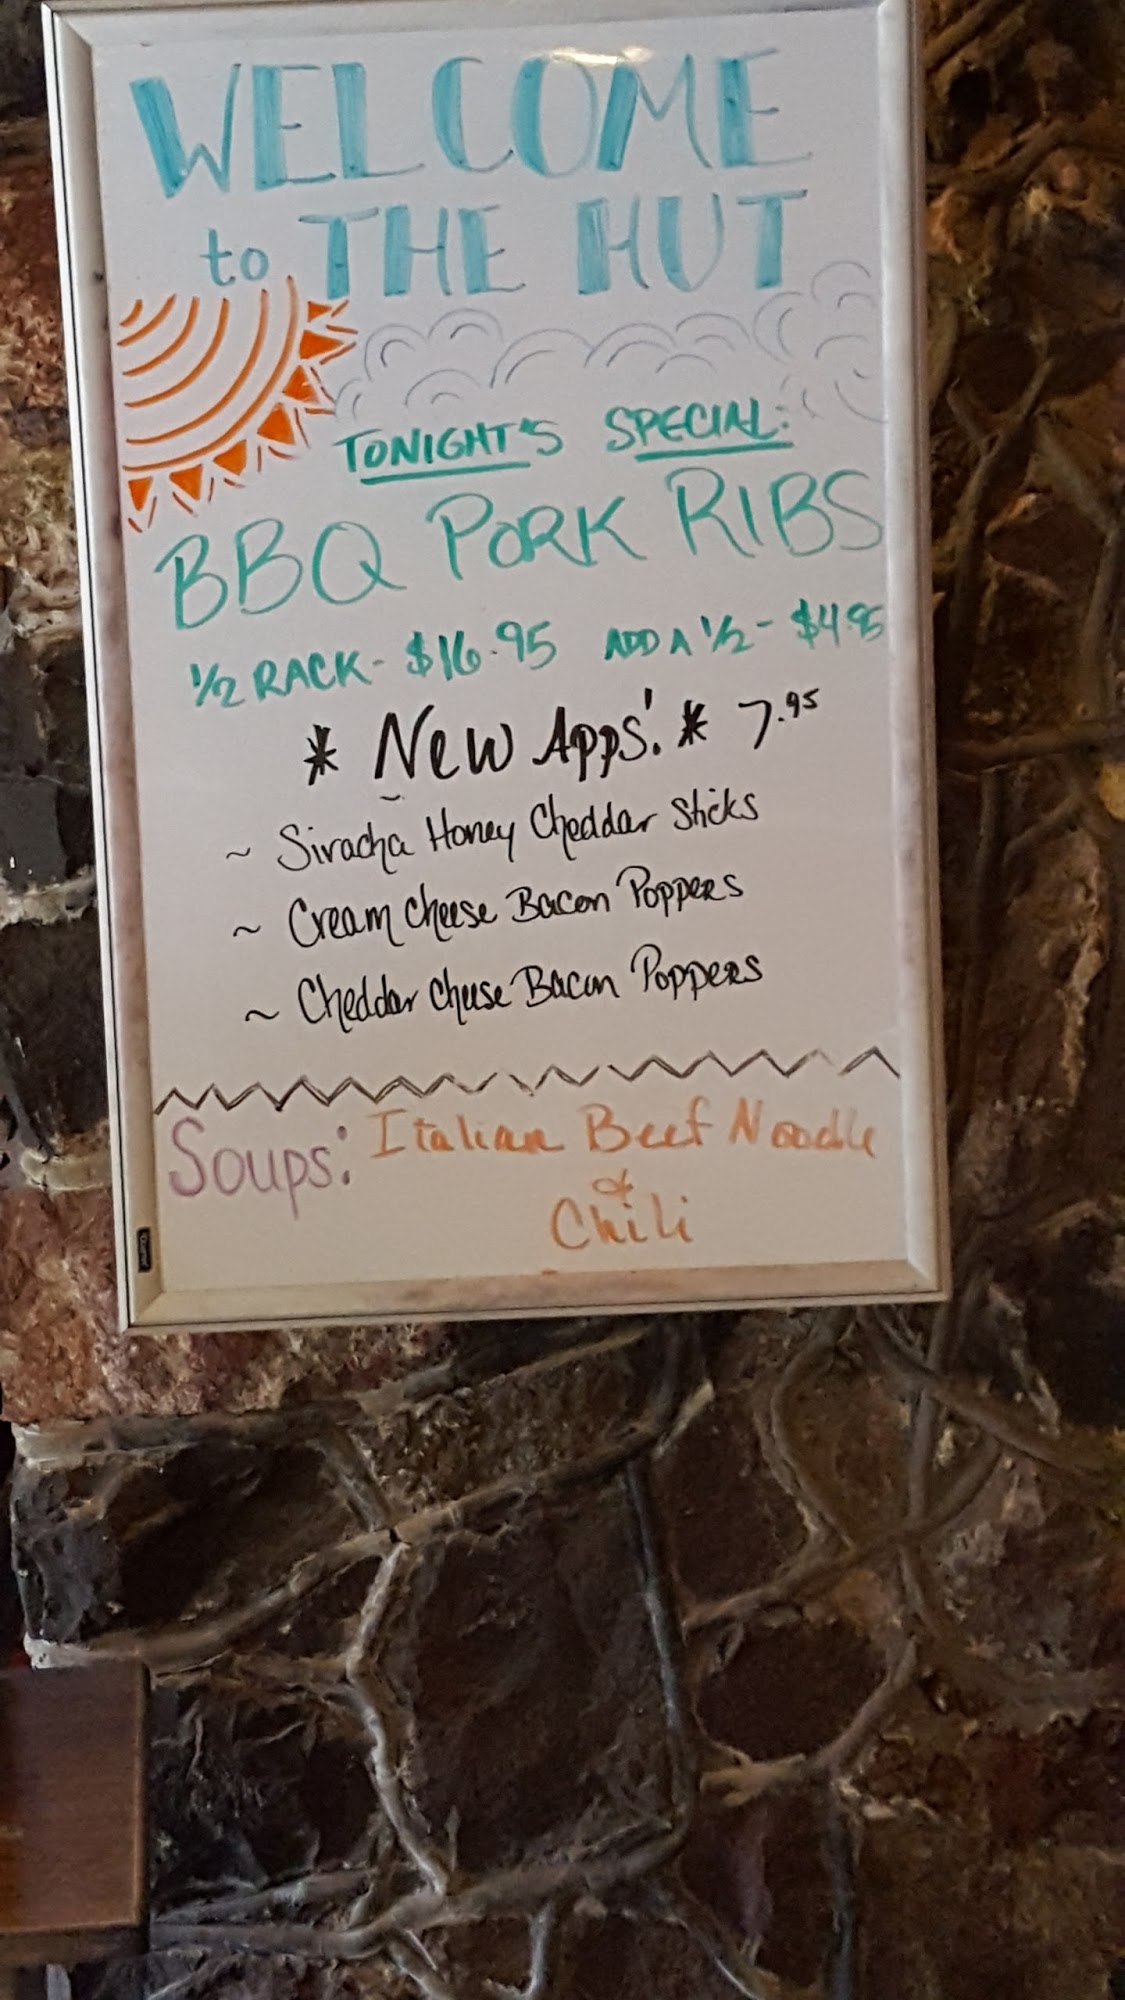 WELCOME
to THE HUT
TONIGHT'S SPECIAL:
BBQ PORK RIBS
1/2 RACK - $16.95 ADD A 1/2 - $4.95
* New Apps! * 7.95
~ Siracha Honey Cheddar Sticks
~ Cream Cheese Bacon Poppers
~ Cheddar Cheese Bacon Poppers
Soups: Italian Beef Noodle
&
Chili
Quartet